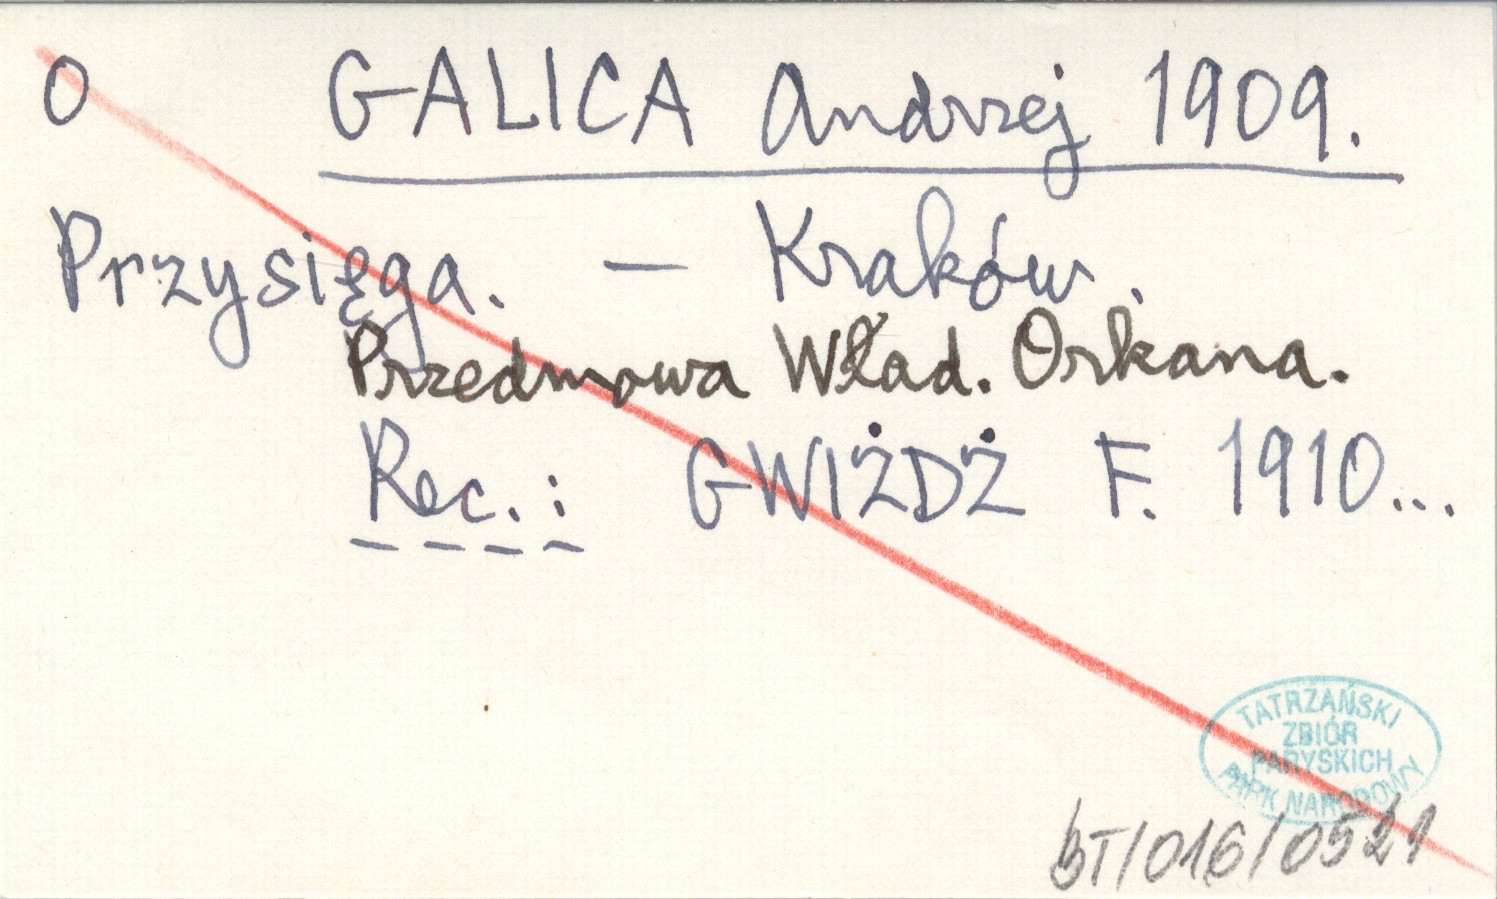 O GALICA Andrzej 1909.
Przysięga. — Kraków.
Przedmowa Wład. Orkana.
Rec.: GWIŻDŻ F. 1910...
TATRZAŃSKI
ZBIÓR
PARYSKICH
PARK NARODOWY
BT/016/0521